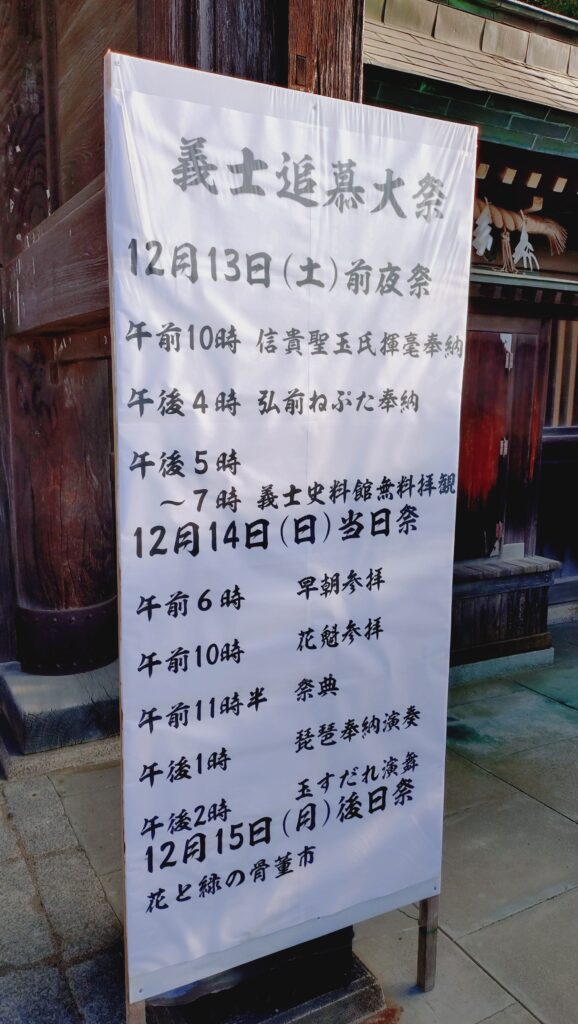 義士追慕大祭
12月13日(土)前夜祭
午前10時 信貴聖玉氏揮毫奉納
午後4時 弘前ねぷた奉納
午後5時
～7時 義士史料館無料拝観
12月14日(日)当日祭
午前6時 早朝参拝
午前10時 花魁参拝
午前11時半 祭典
午後1時 琵琶奉納演奏
午後2時 玉すだれ演舞
12月15日(月)後日祭
花と緑の骨董市